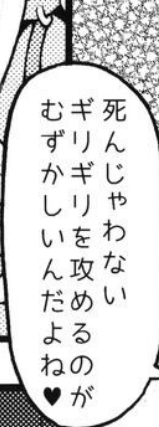 死んじゃわない
ギリギリを攻めるのが
むずかしいんだよね♥